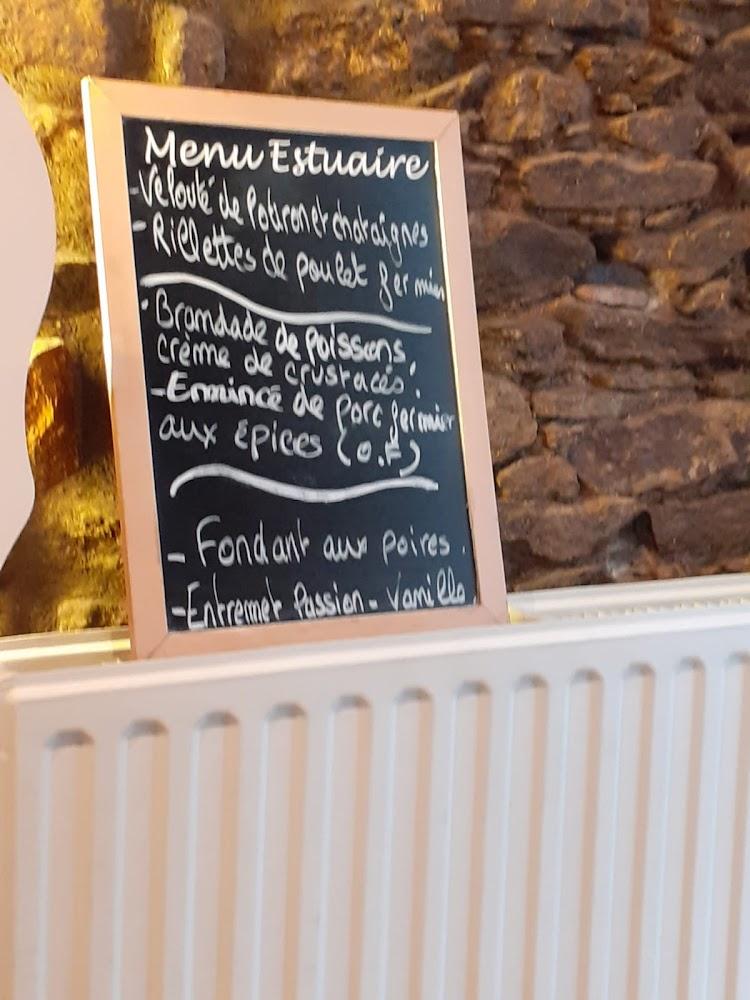 Menu Estuaire
- Velouté de Potiron et chataîgnes
- Rillettes de poulet fermier
- Brandade de poissons,
crème de crustacés.
- Emincé de porc fermier
aux épices (O.F)
- Fondant aux poires.
- Entremet Passion - Vanille